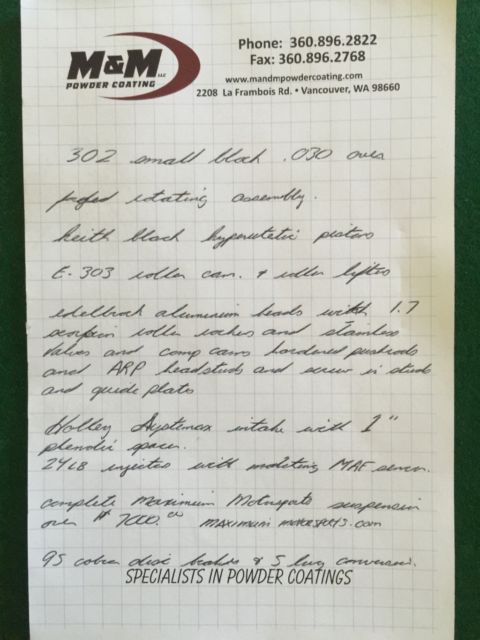 M&M LLC
POWDER COATING
Phone: 360.896.2822
Fax: 360.896.2768
www.mandmpowdercoating.com
2208 La Frambois Rd. • Vancouver, WA 98660
302 small block .030 over
forged rotating assembly.
keith black hyperutetic pistons
E-303 roller cam. & roller lifters
edelbrock aluminum heads with 1.7
scorpion roller rockers and stainless
valves and comp cams hardened pushrods
and ARP headstuds and screw in studs
and guide plates
Holley Systemax intake with 1"
phenolic spacer.
24LB injectors with matching MAF sensor.
complete Maximum Motorsports suspension
over $ 7000.00 MAXIMUM MOTORSPORTS.com
95 cobra disc brakes & 5 lug conversion.
SPECIALISTS IN POWDER COATINGS